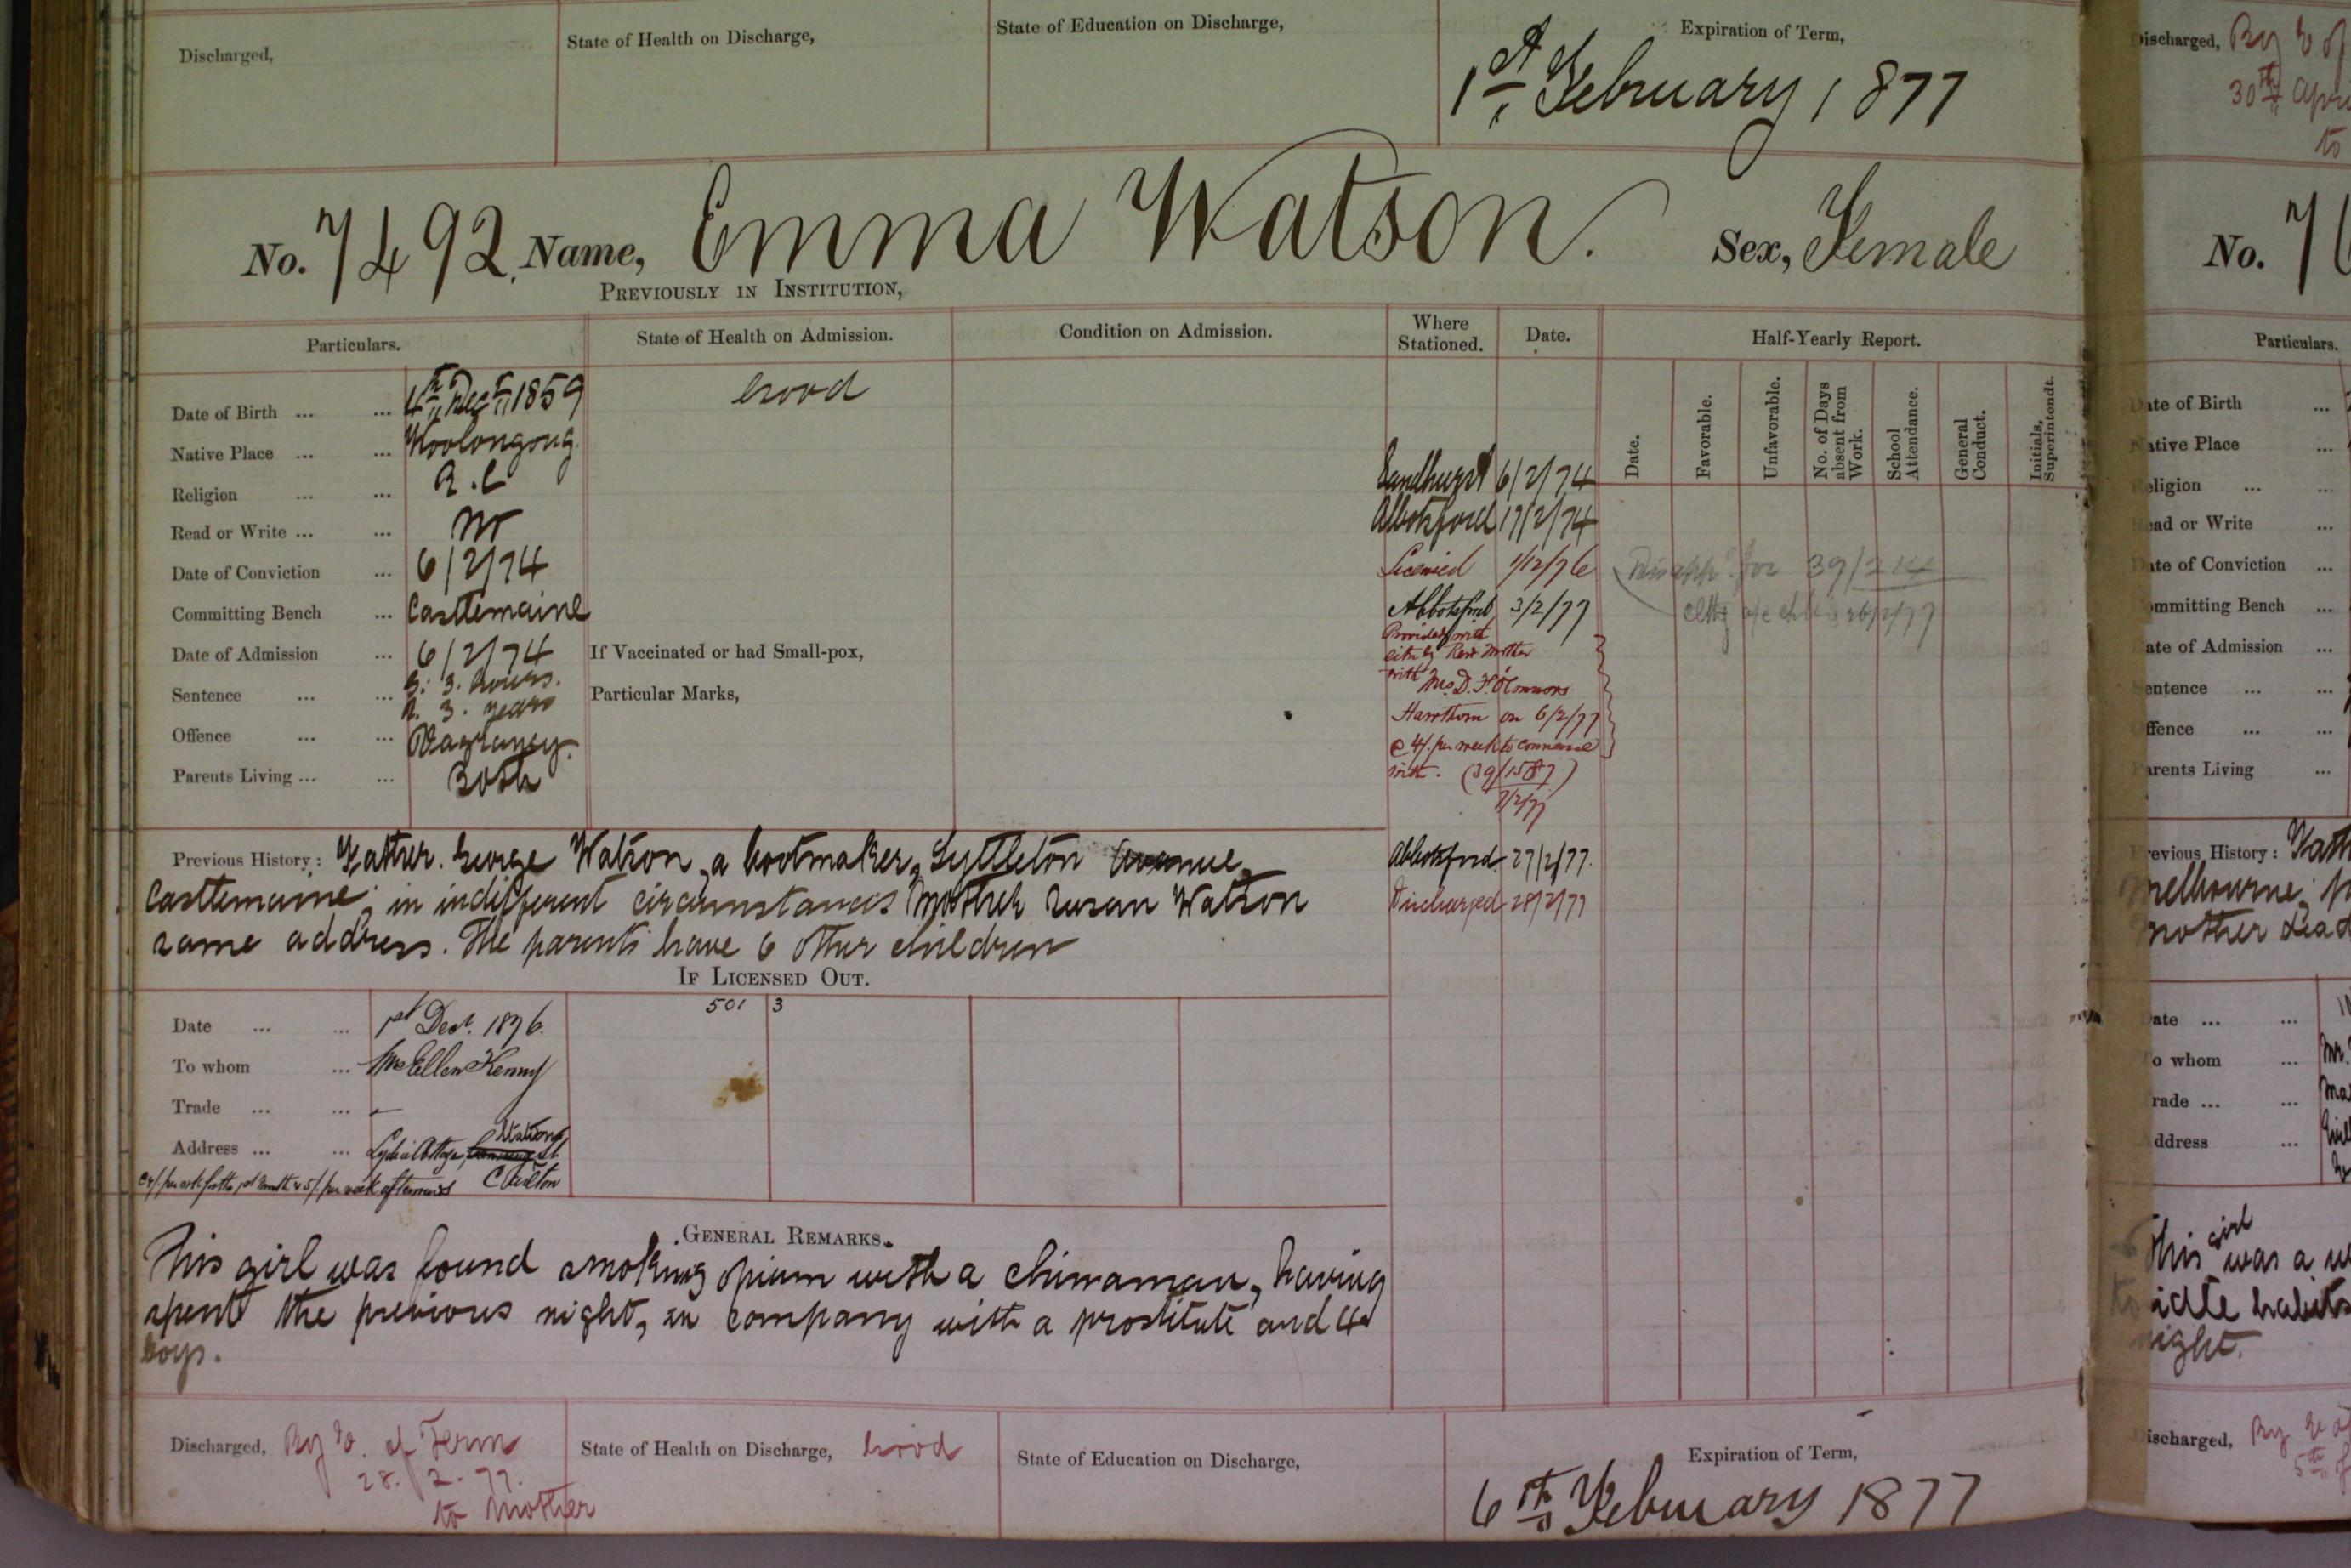 Discharged,
State of Health on Discharge,
State of Education on Discharge,
Expiration of Term,
1st February 1877
No. 7492. Name, Emma Watson. Sex, Female
PREVIOUSLY IN INSTITUTION,
Particulars.
State of Health on Admission.
Condition on Admission.
Where Stationed.
Date.
Half-Yearly Report.
Date.
Favorable.
Unfavorable.
No. of Days absent from Work.
School Attendance.
General Conduct.
Initials, Superintendt.
Date of Birth ... ... 4th Decr 1859
Good
Native Place ... ... Woolongong
Religion ... ... R.C
Read or Write ... ...
Date of Conviction ... 6/2/74
Committing Bench ... Castlemaine
Date of Admission ... 6/2/74
Sentence ... ... G. 3. hours.
R. 3. years
Offence ... ... Vagrancy.
Parents Living ... ... Both
If Vaccinated or had Small-pox,
Particular Marks,
Sandhurst 6/2/74
Abbotsford 17/2/74
Licensed 1/12/76
Abbotsford 3/2/77
Provided with
sitn by Revd Mother
with Mrs. D. F. O'Connors
Hawthorn on 6/2/77
@ 4/. per week to commence
with. (39/1587)
7/2/77
Abbotsford 27/2/77.
Discharged 28/2/77
for 39/2
Previous History: Father. George Watson, a bootmaker, Lyttleton Avenue,
Castlemaine; in indifferent circumstances Mother Susan Watson
same address. The parents have 6 other children
IF LICENSED OUT.
501 3
Date ... ... 1st Decr. 1876.
To whom ... Mrs Ellen Kenny
Trade ... ... –
Address ... ... Lydia Cottage, Station St
Carlton
@ 4/. per week for the 1st month & 5/. per week afterwards
GENERAL REMARKS.
This girl was found smoking opium with a chinaman, having
spent the previous night, in company with a prostitute and 4
boys.
Discharged, By E. of Term
28. 2. 77.
to Mother
State of Health on Discharge, Good
State of Education on Discharge,
Expiration of Term,
6th February 1877
Discharged, By E of
30th Apr
to
No. 7
Particulars.
Date of Birth ...
Native Place ...
Religion ... ...
Read or Write ...
Date of Conviction ...
Committing Bench ...
Date of Admission ...
Sentence ... ...
Offence ... ...
Parents Living ...
Previous History: Fath
Melbourne;
mother dead
Date ... ...
To whom ... Mr.
Trade ... ...
Address ...
This girl was a
to idle habits
night.
Discharged, By E of
5th